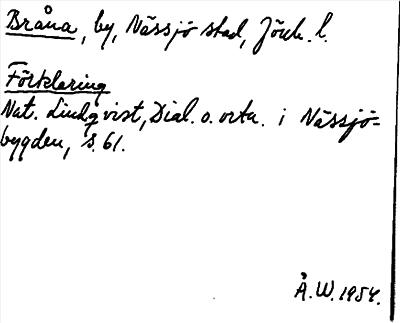 Bråna, by, Nässjö stad, Jönk. l.
Förklaring
Nat. Lindqvist, Dial. o. ortn. i Nässjö-
bygden, s. 61.
Å. W. 1954.